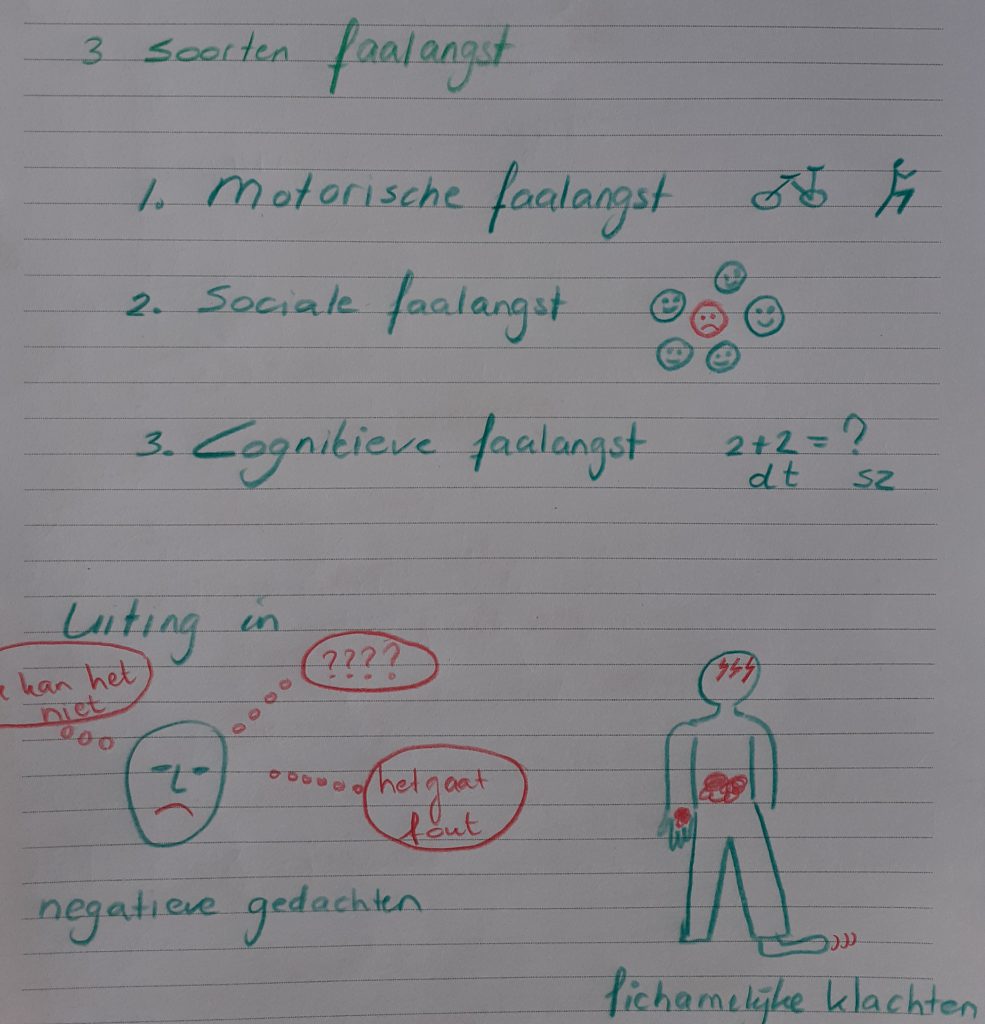 3 soorten faalangst
1. Motorische faalangst
2. Sociale faalangst
3. Cognitieve faalangst 2+2=?
dt sz
Uiting in
????
k kan het
niet
het gaat
fout
negatieve gedachten
lichamelijke klachten